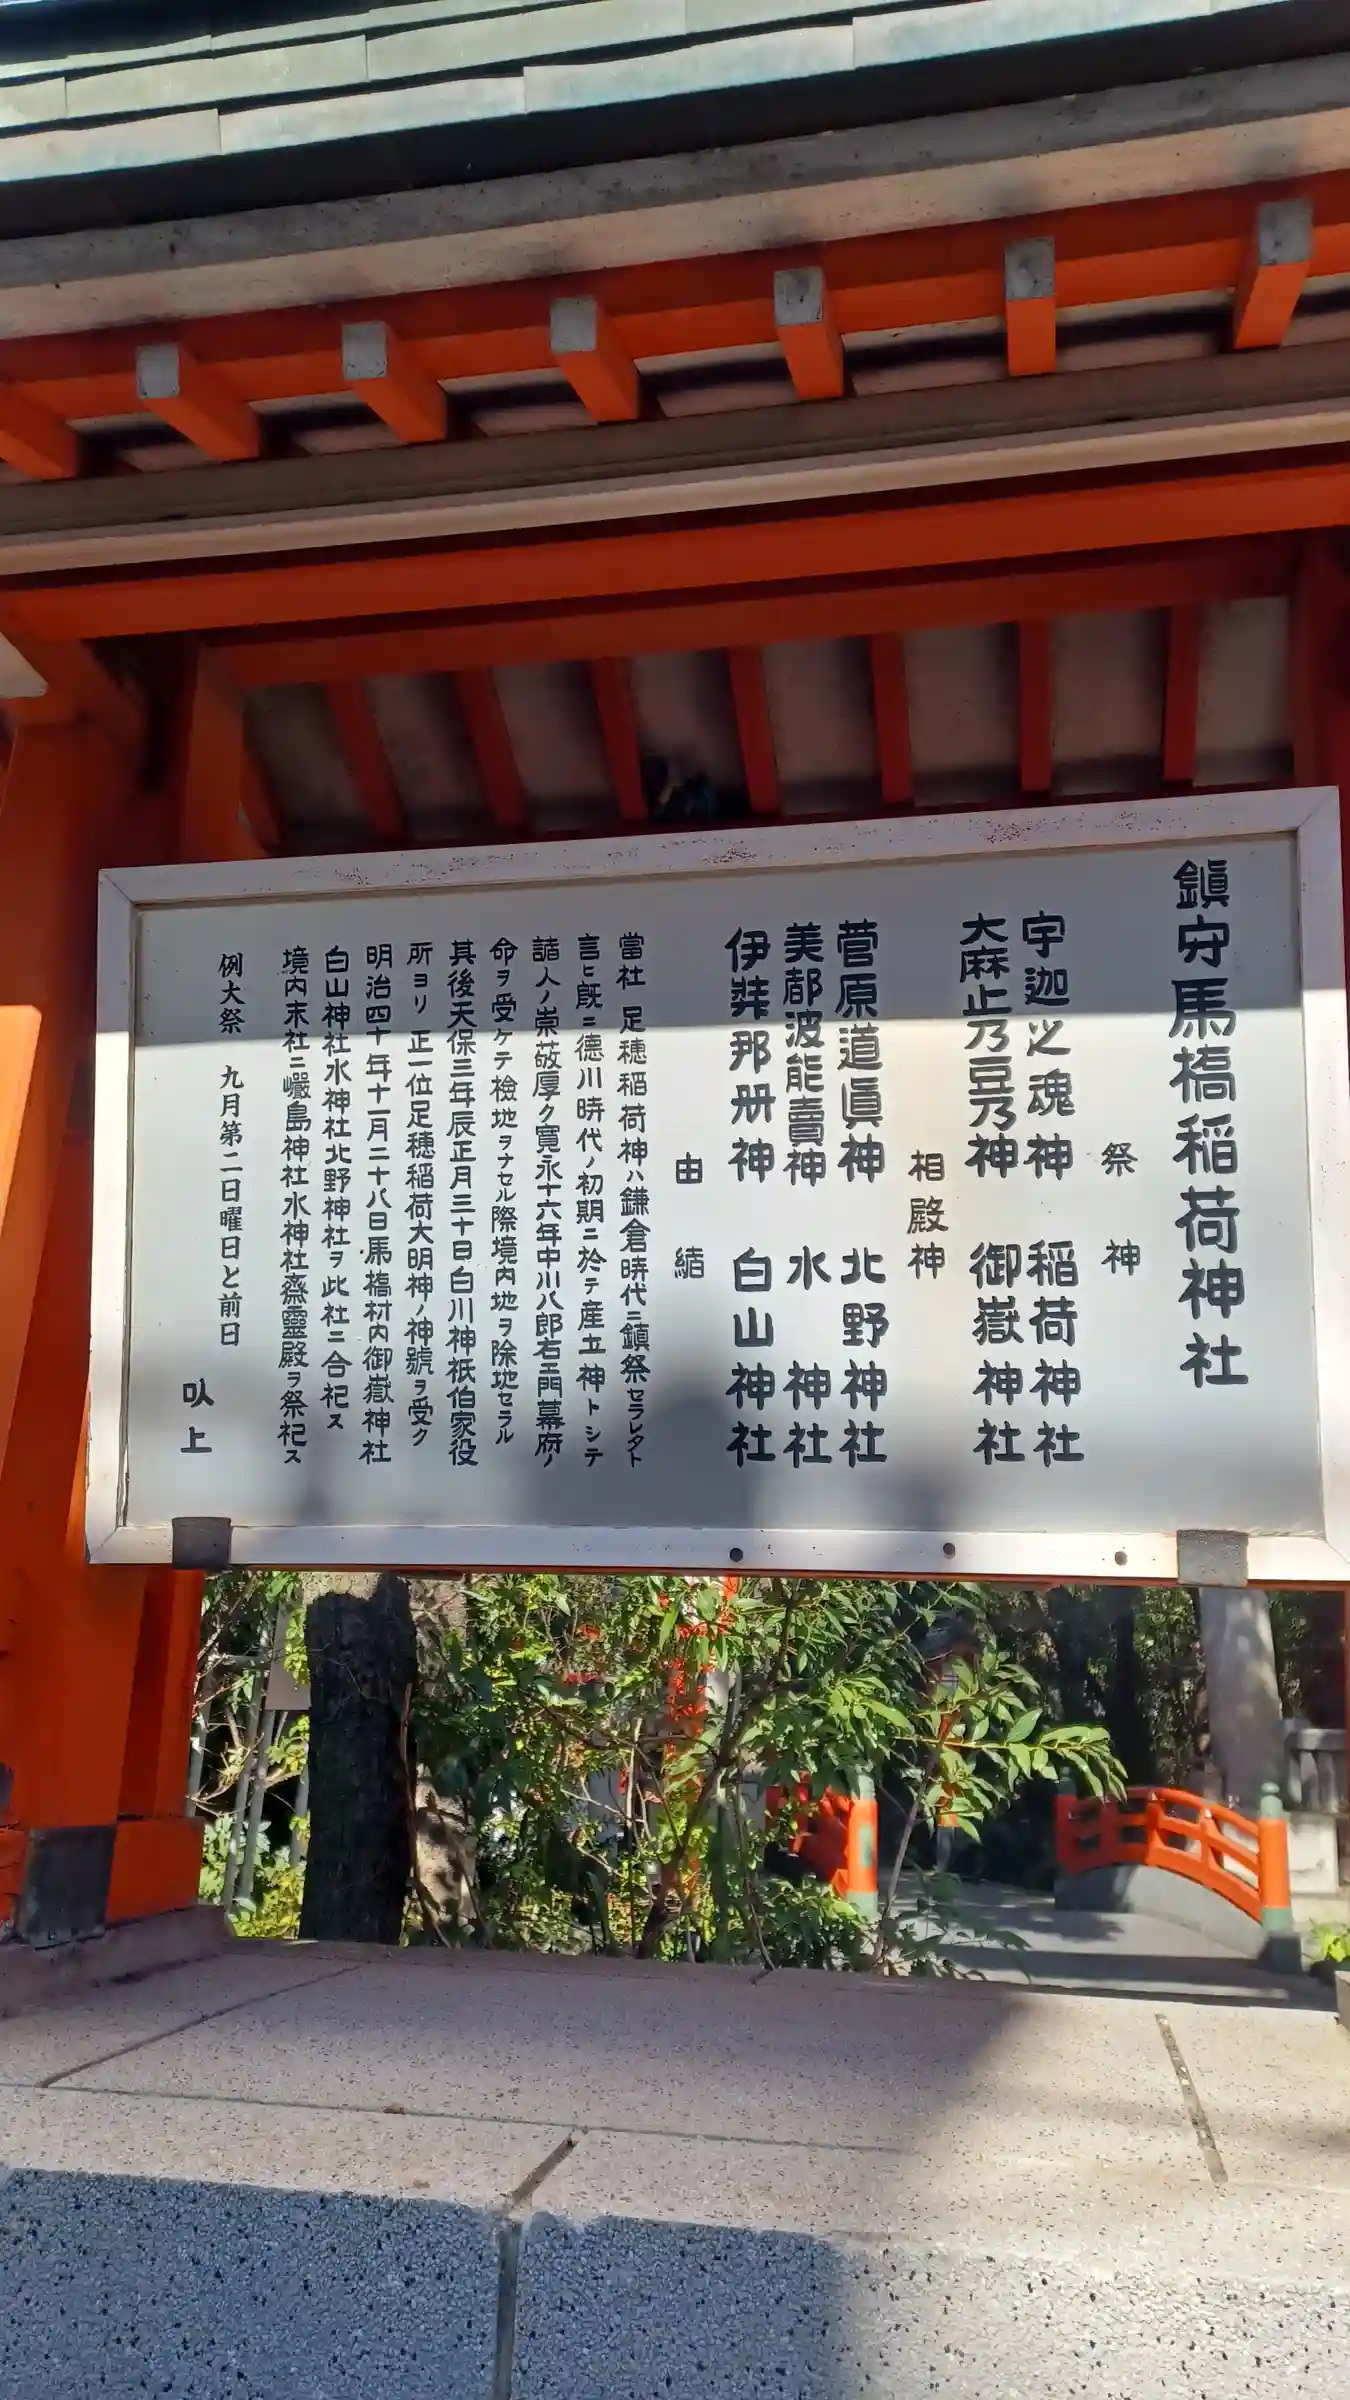 鎮守馬橋稲荷神社
祭神
宇迦之魂神 稲荷神社
大麻止乃豆乃神 御嶽神社
相殿神
菅原道眞神 北野神社
美都波能賣神 水神社
伊弉那册神 白山神社
由緒
當社 足穂稲荷神ハ鎌倉時代ニ鎮祭セラレタト
言ヒ既ニ德川時代ノ初期ニ於テ産土神トシテ
諸人ノ崇敬厚ク寛永十六年中川八郎右エ門幕府ノ
命ヲ受ケテ檢地ヲナセル際境内地ヲ除地セラル
其後天保三年辰正月三十日白川神祇伯家役
所ヨリ正一位足穂稲荷大明神ノ神號ヲ受ク
明治四十年十一月二十八日馬橋村内御嶽神社
白山神社水神社北野神社ヲ此社ニ合祀ス
境内末社ニ嚴島神社水神社齋靈殿ヲ祭祀ス
例大祭 九月第二日曜日と前日
以上